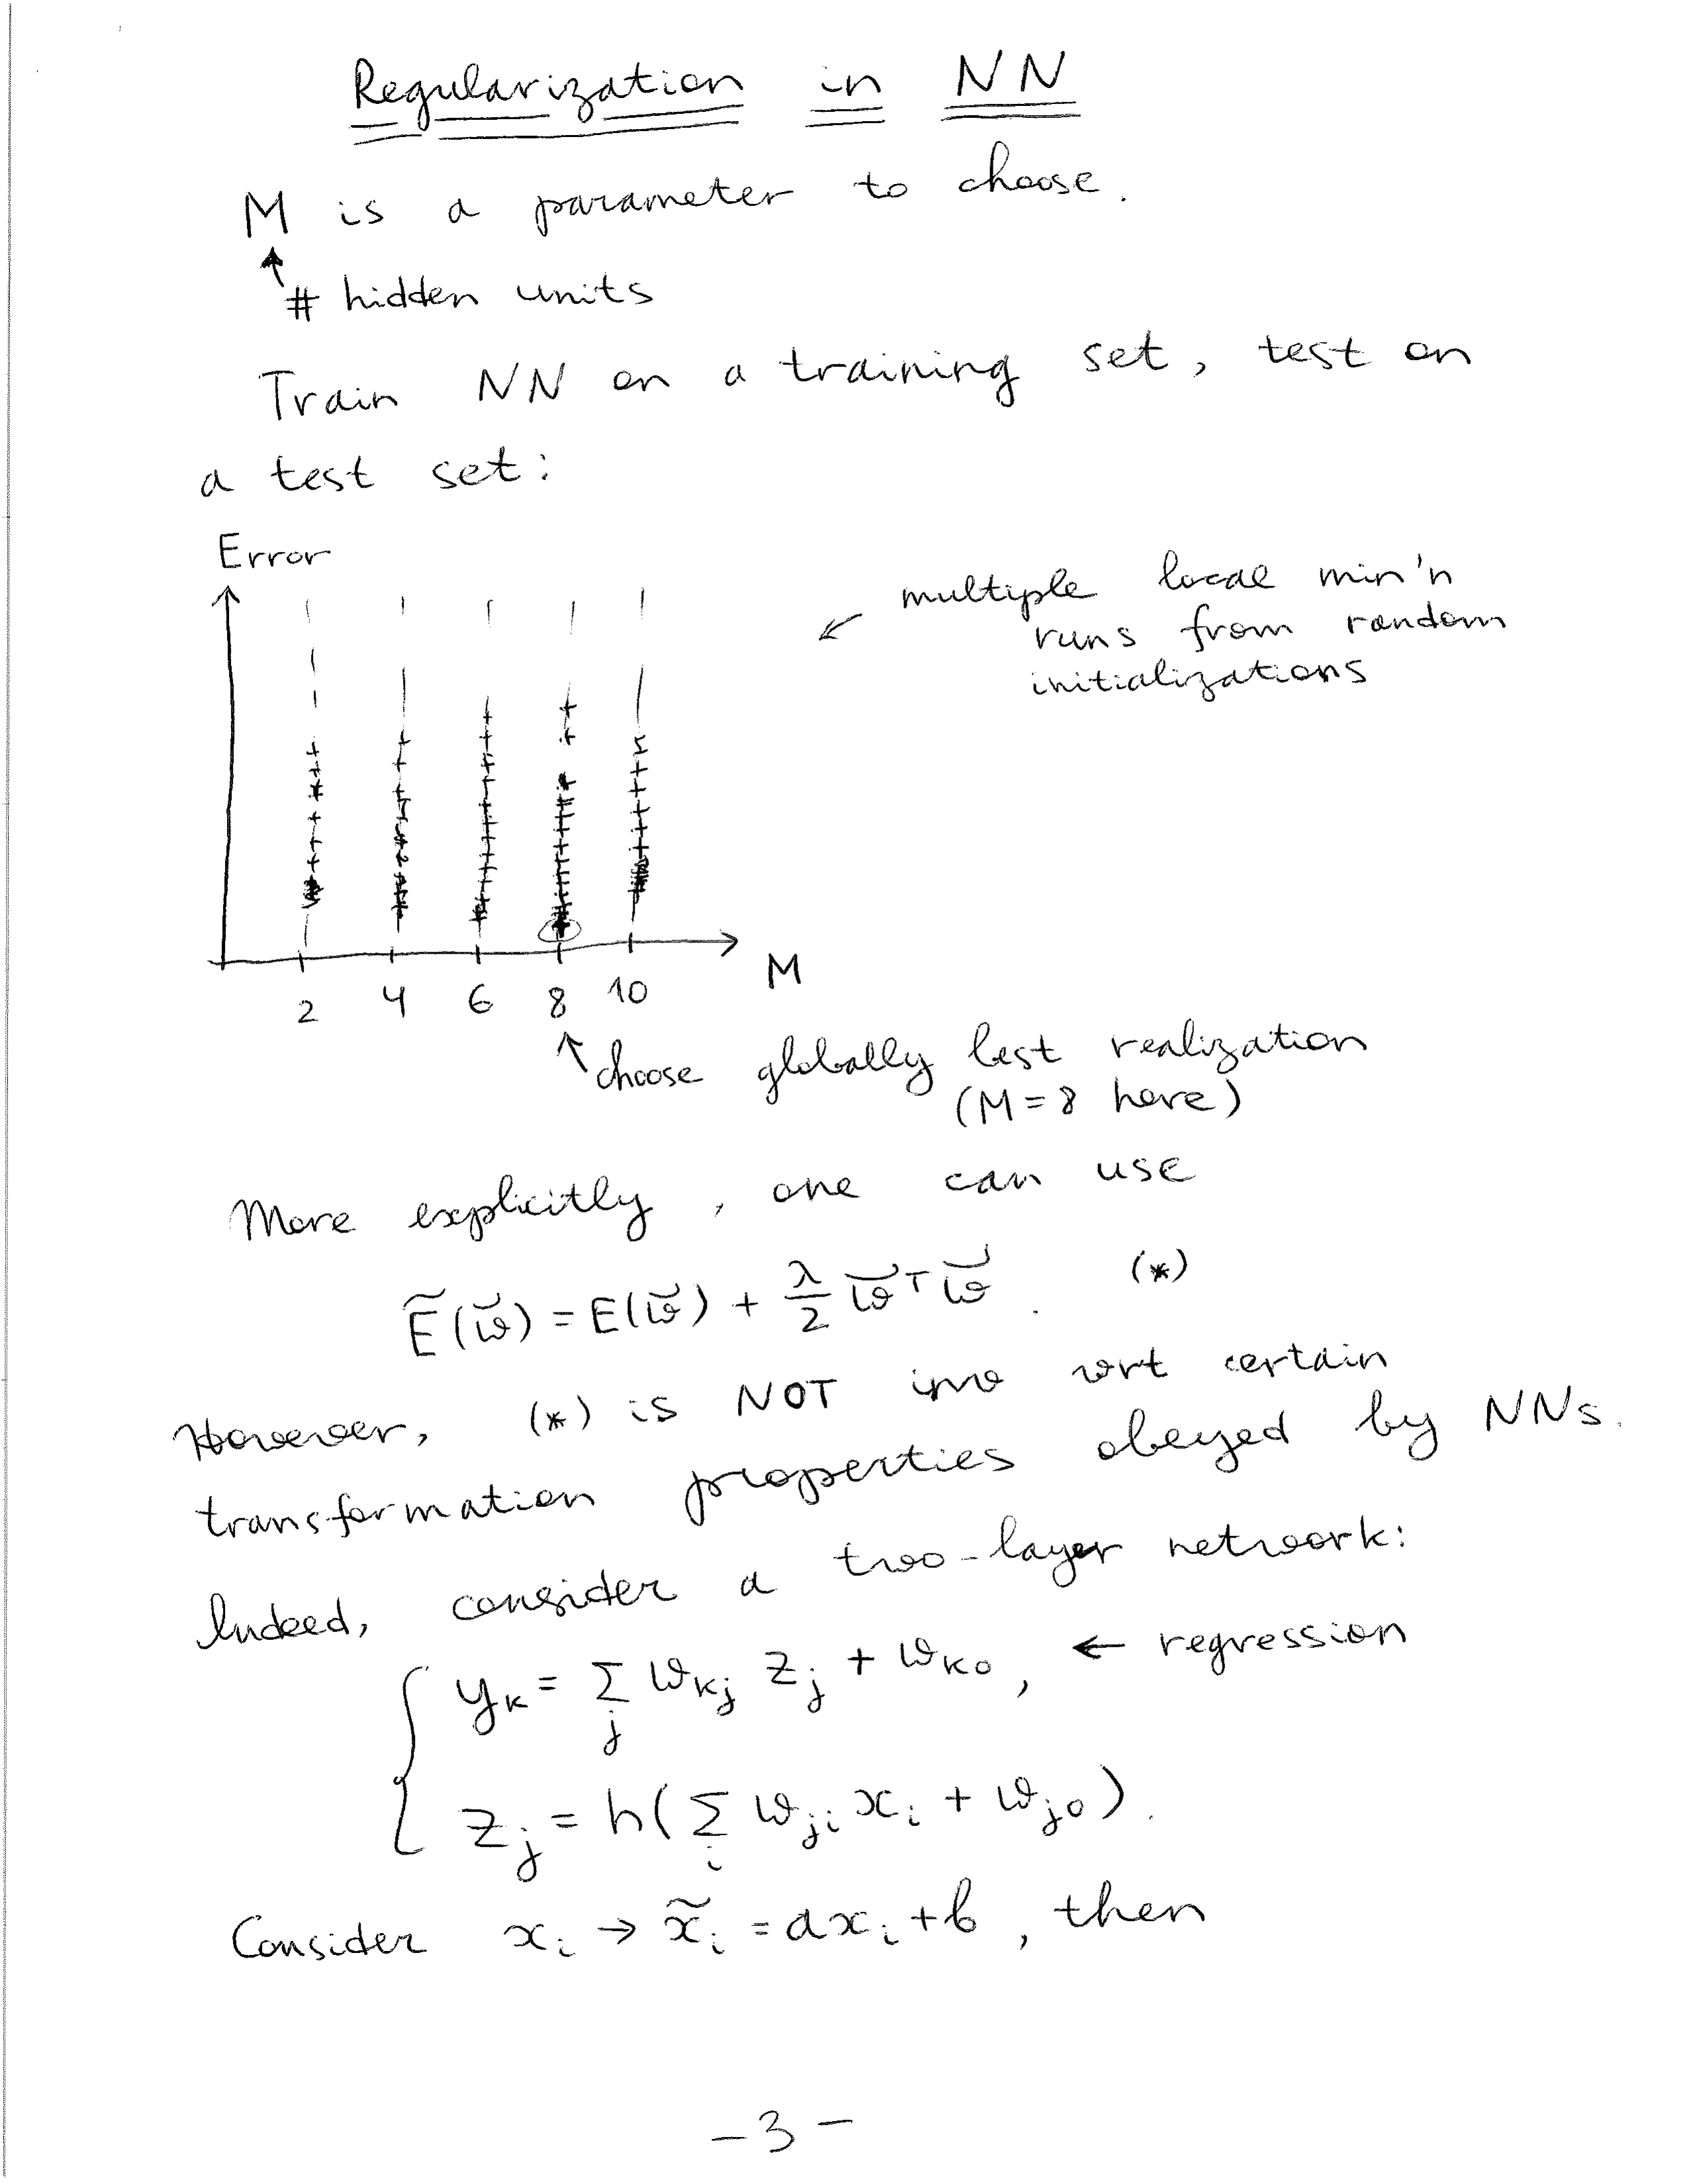 Regularization in NN
M is a parameter to choose.
↑
# hidden units
Train NN on a training set, test on
a test set:
Error
← multiple local min'n
runs from random
initializations
M
2 4 6 8 10
↑ choose globally best realization
(M = 8 here)
More explicitly, one can use
Ẽ(w̆) = E(w̆) + λ/2 w̆ᵀ w̆. (*)
However, (*) is NOT inv wrt certain
transformation properties obeyed by NNs.
Indeed, consider a two-layer network:
y_k = Σ_j w_kj z_j + w_k0, ← regression
z_j = h(Σ_i w_ji x_i + w_j0).
Consider x_i → x̃_i = ax_i + b, then
- 3 -